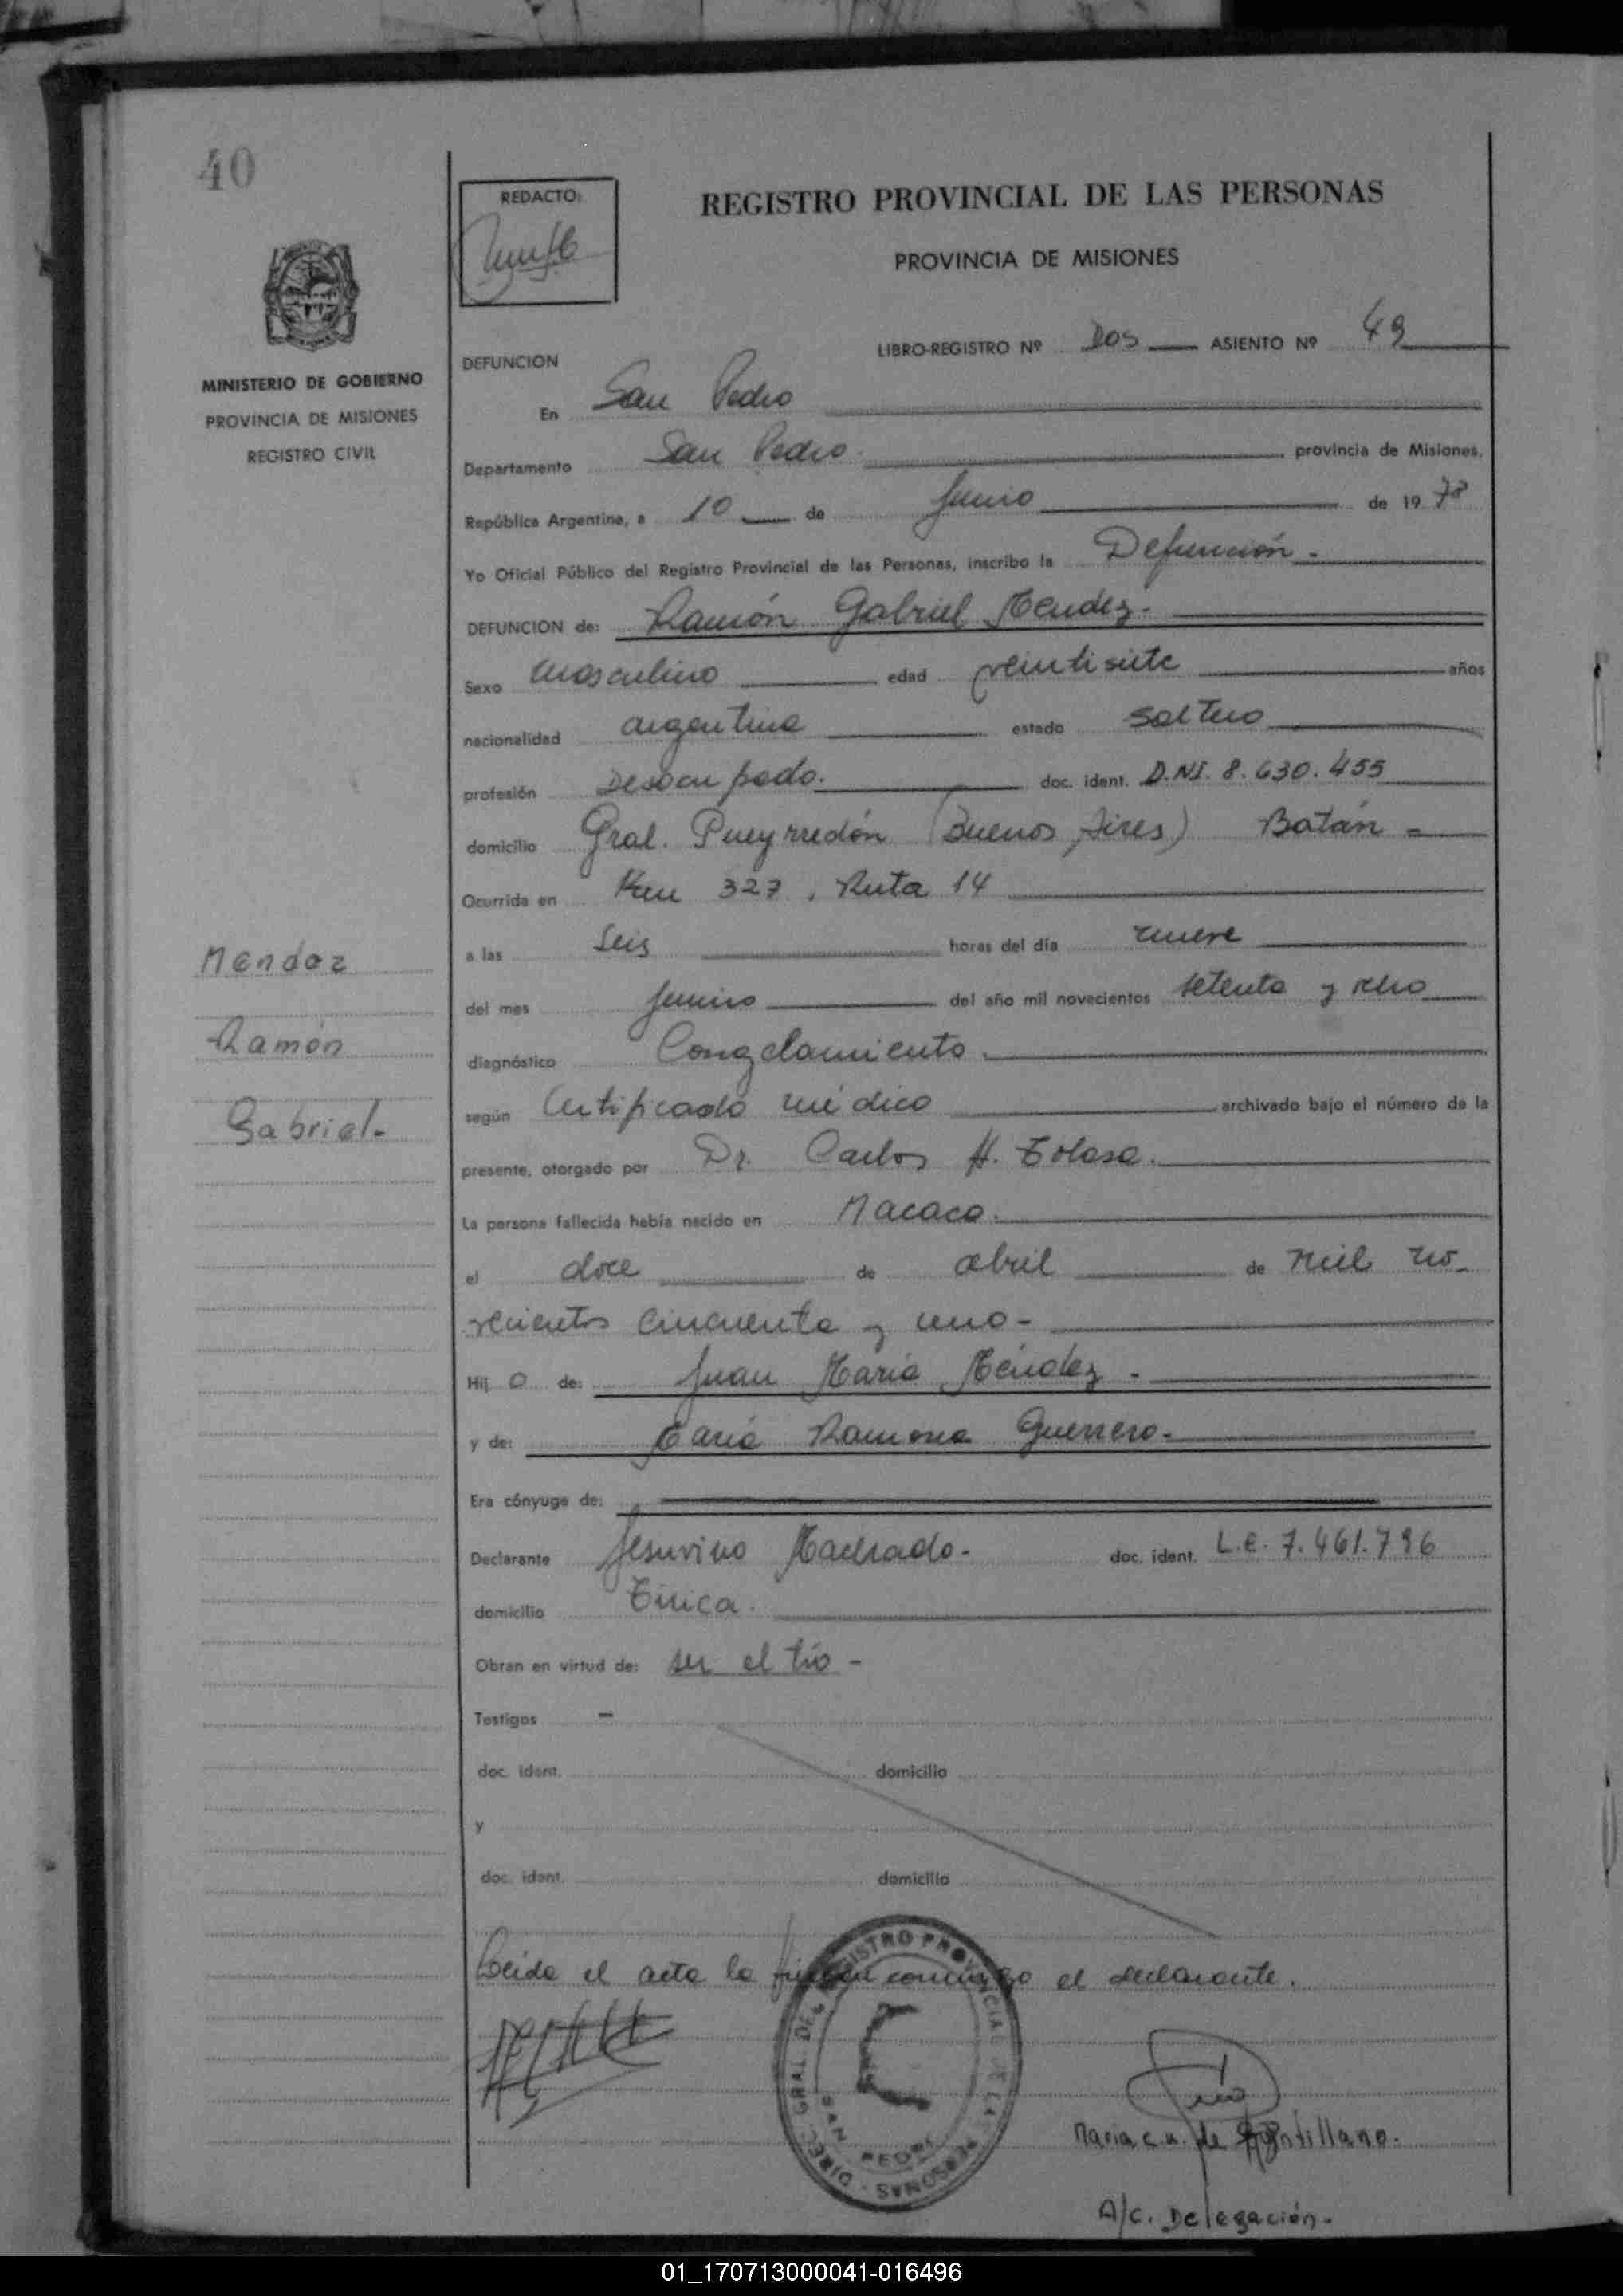 40
REDACTO:
REGISTRO PROVINCIAL DE LAS PERSONAS
PROVINCIA DE MISIONES
LIBRO-REGISTRO Nº Dos ASIENTO Nº 49
DEFUNCION
MINISTERIO DE GOBIERNO
PROVINCIA DE MISIONES
REGISTRO CIVIL
En San Pedro
Departamento San Pedro. provincia de Misiones,
República Argentina, a 10 de Junio de 19 78
Yo Oficial Público del Registro Provincial de las Personas, inscribo la Defunción.
DEFUNCION de: Ramón Gabriel Mendez.
Sexo masculino edad veintisiete años
nacionalidad argentina estado soltero
profesión Desocupado. doc. ident. D.NI. 8.630.455
domicilio Gral. Pueyrredón (Buenos Aires) Batán -
Ocurrida en Km 327, Ruta 14
a las seis horas del día nueve
del mes junio del año mil novecientos setenta y ocho
diagnóstico Congelamiento.
según Certificado médico archivado bajo el número de la
presente, otorgado por Dr. Carlos H. Tolosa.
La persona fallecida había nacido en Macaco.
el doce de abril de mil no-
vecientos cincuenta y uno -
Hij o de: Juan María Méndez -
y de: María Ramona Guerrero -
Era cónyuge de:
Declarante Jesuvino Machado - doc. ident. L.E. 7.461.796
domicilio Tirica.
Obran en virtud de: ser el tío -
Testigos -
doc. ident. domicilio
y
doc. ident. domicilio
Leída el acta la firman conmigo el declarante.
Mendez
Ramón
Gabriel-
DIREC. GRAL. DEL REGISTRO PROVINCIAL DE LAS PERSONAS -
SAN PEDRO
Maria C. de
A/C. Delegación -
01_170713000041-016496